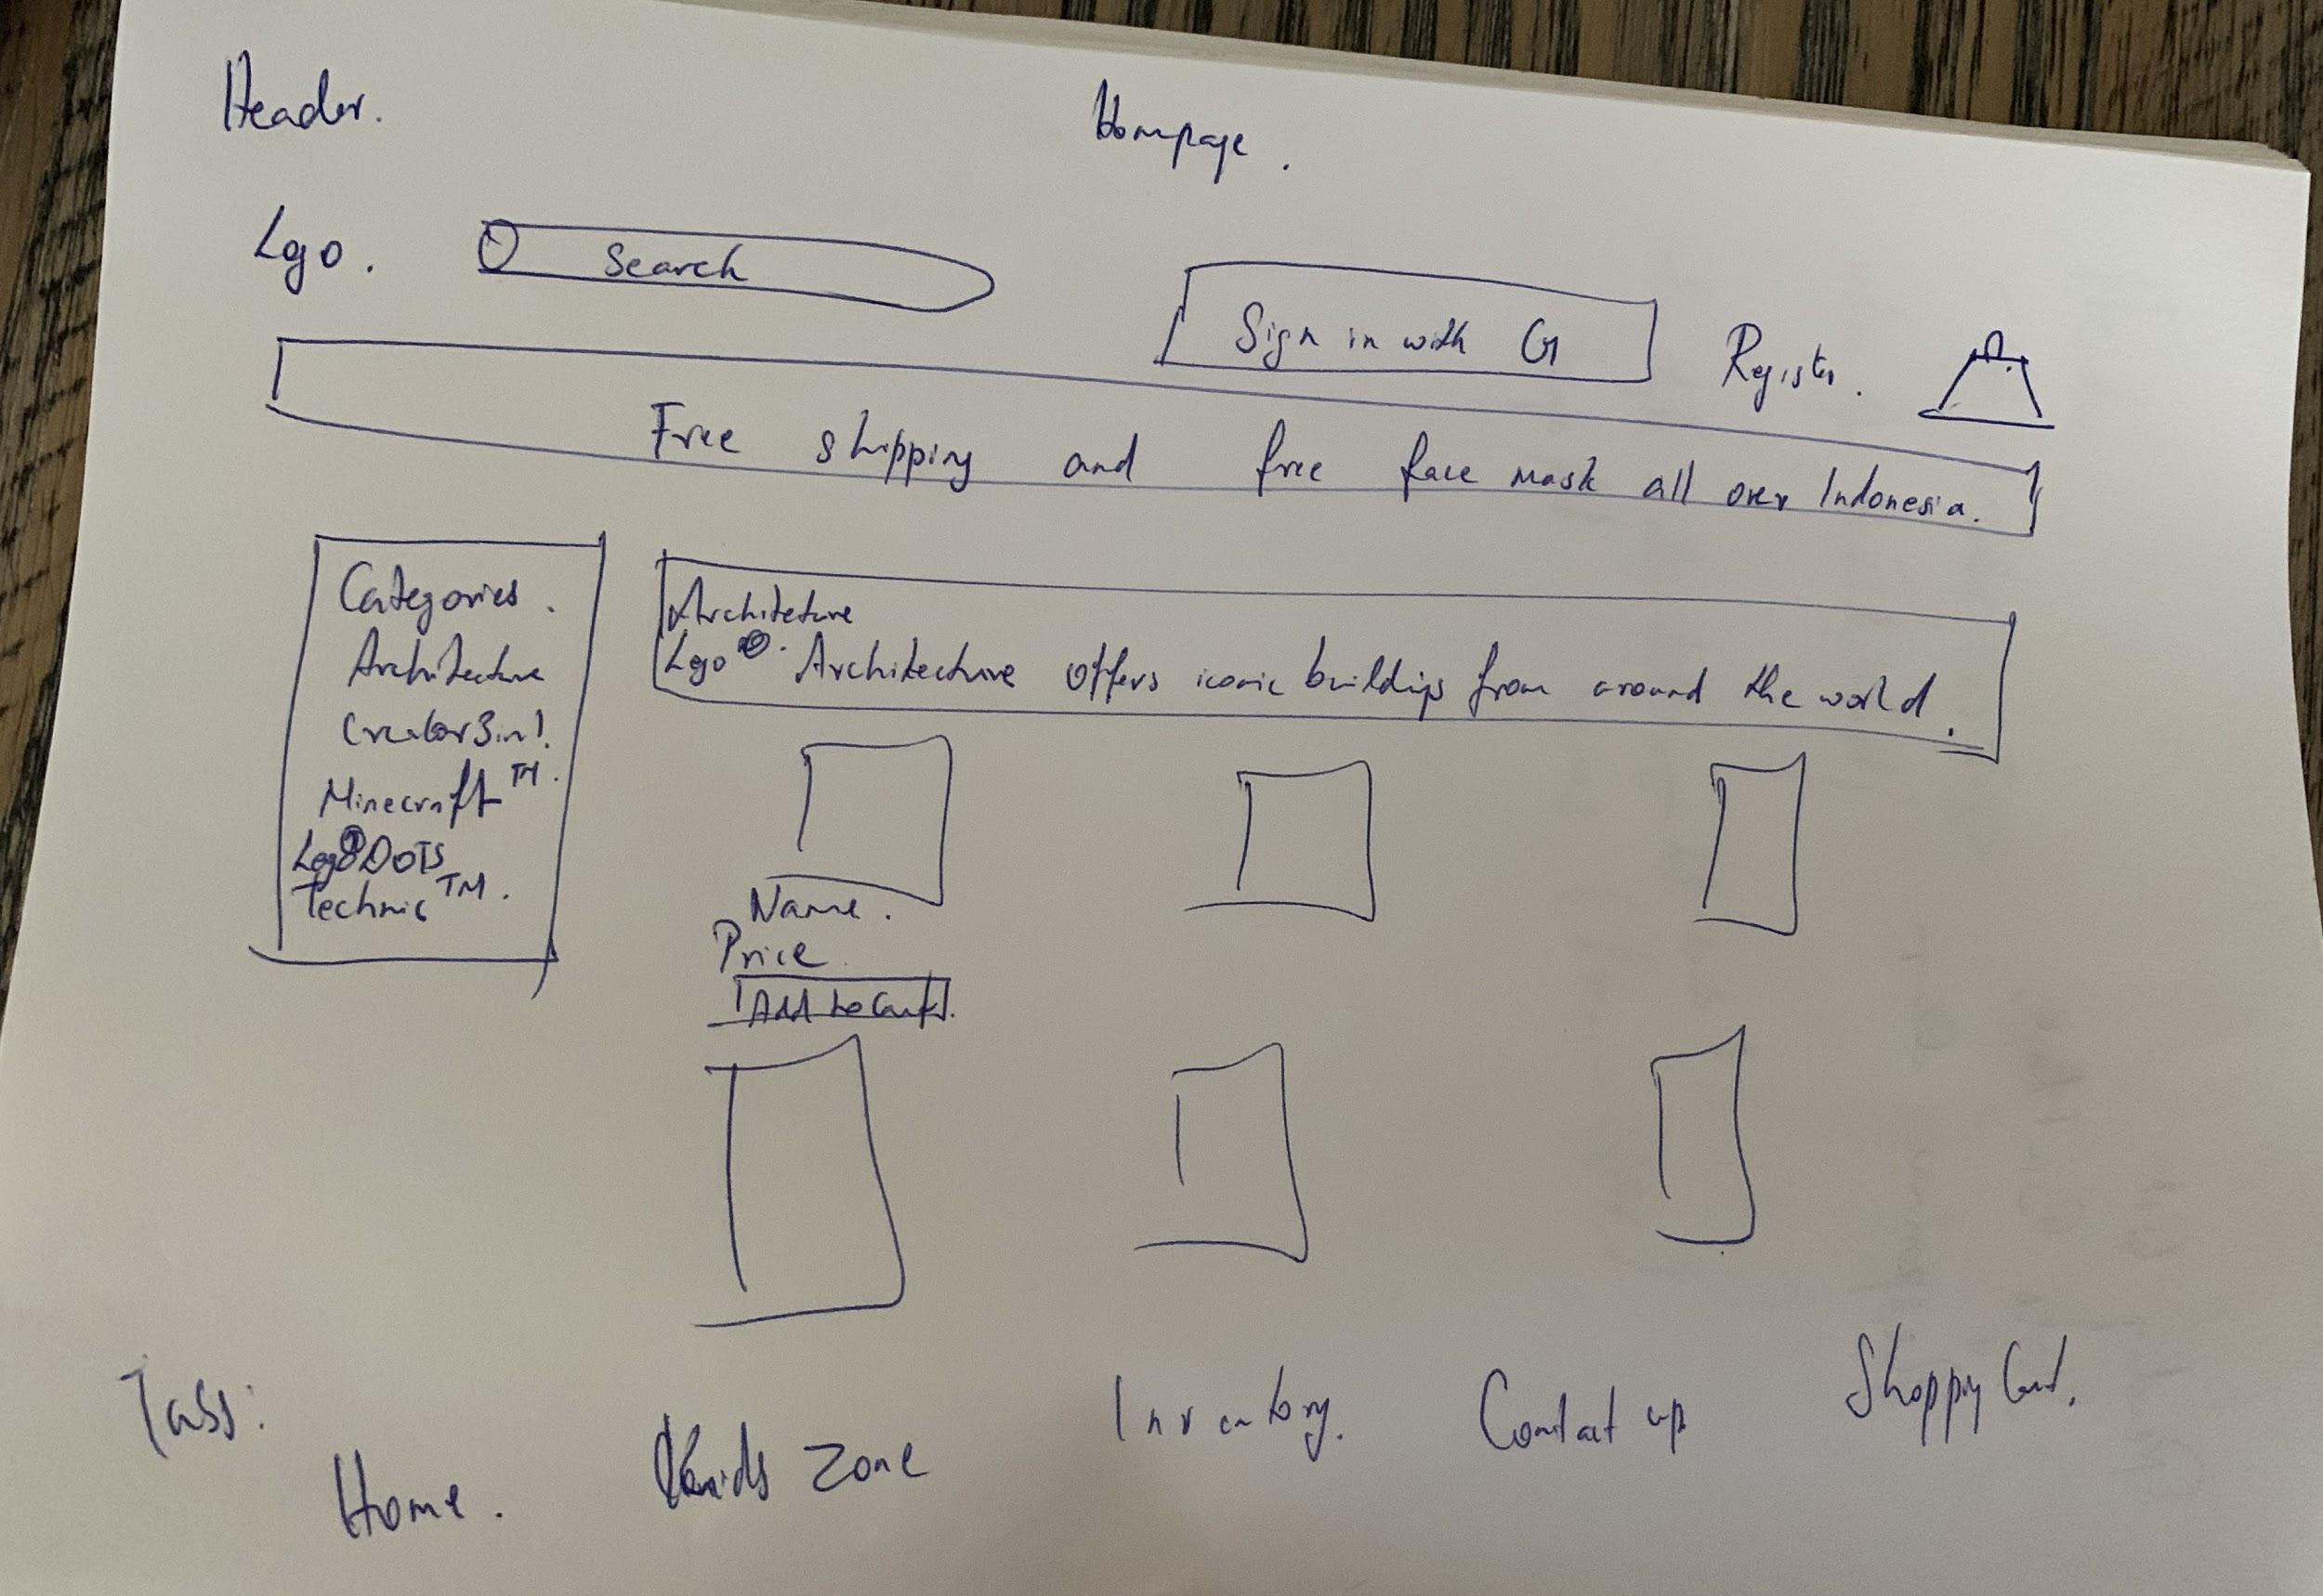 Header.
Hompage.
Lgo.
Search
Sign in with G
Register.
Free shipping and free face mask all over Indonesia.
Categories.
Architecture
Creator 3in1.
Minecraft TM.
Lego® DOTS
Technic TM.
Architeture
Lego®. Architecture offers iconic buildings from around the world.
Name.
Price.
Add to Cart.
Home.
Kids Zone
Inventory.
Contact up
Shopping Cart.